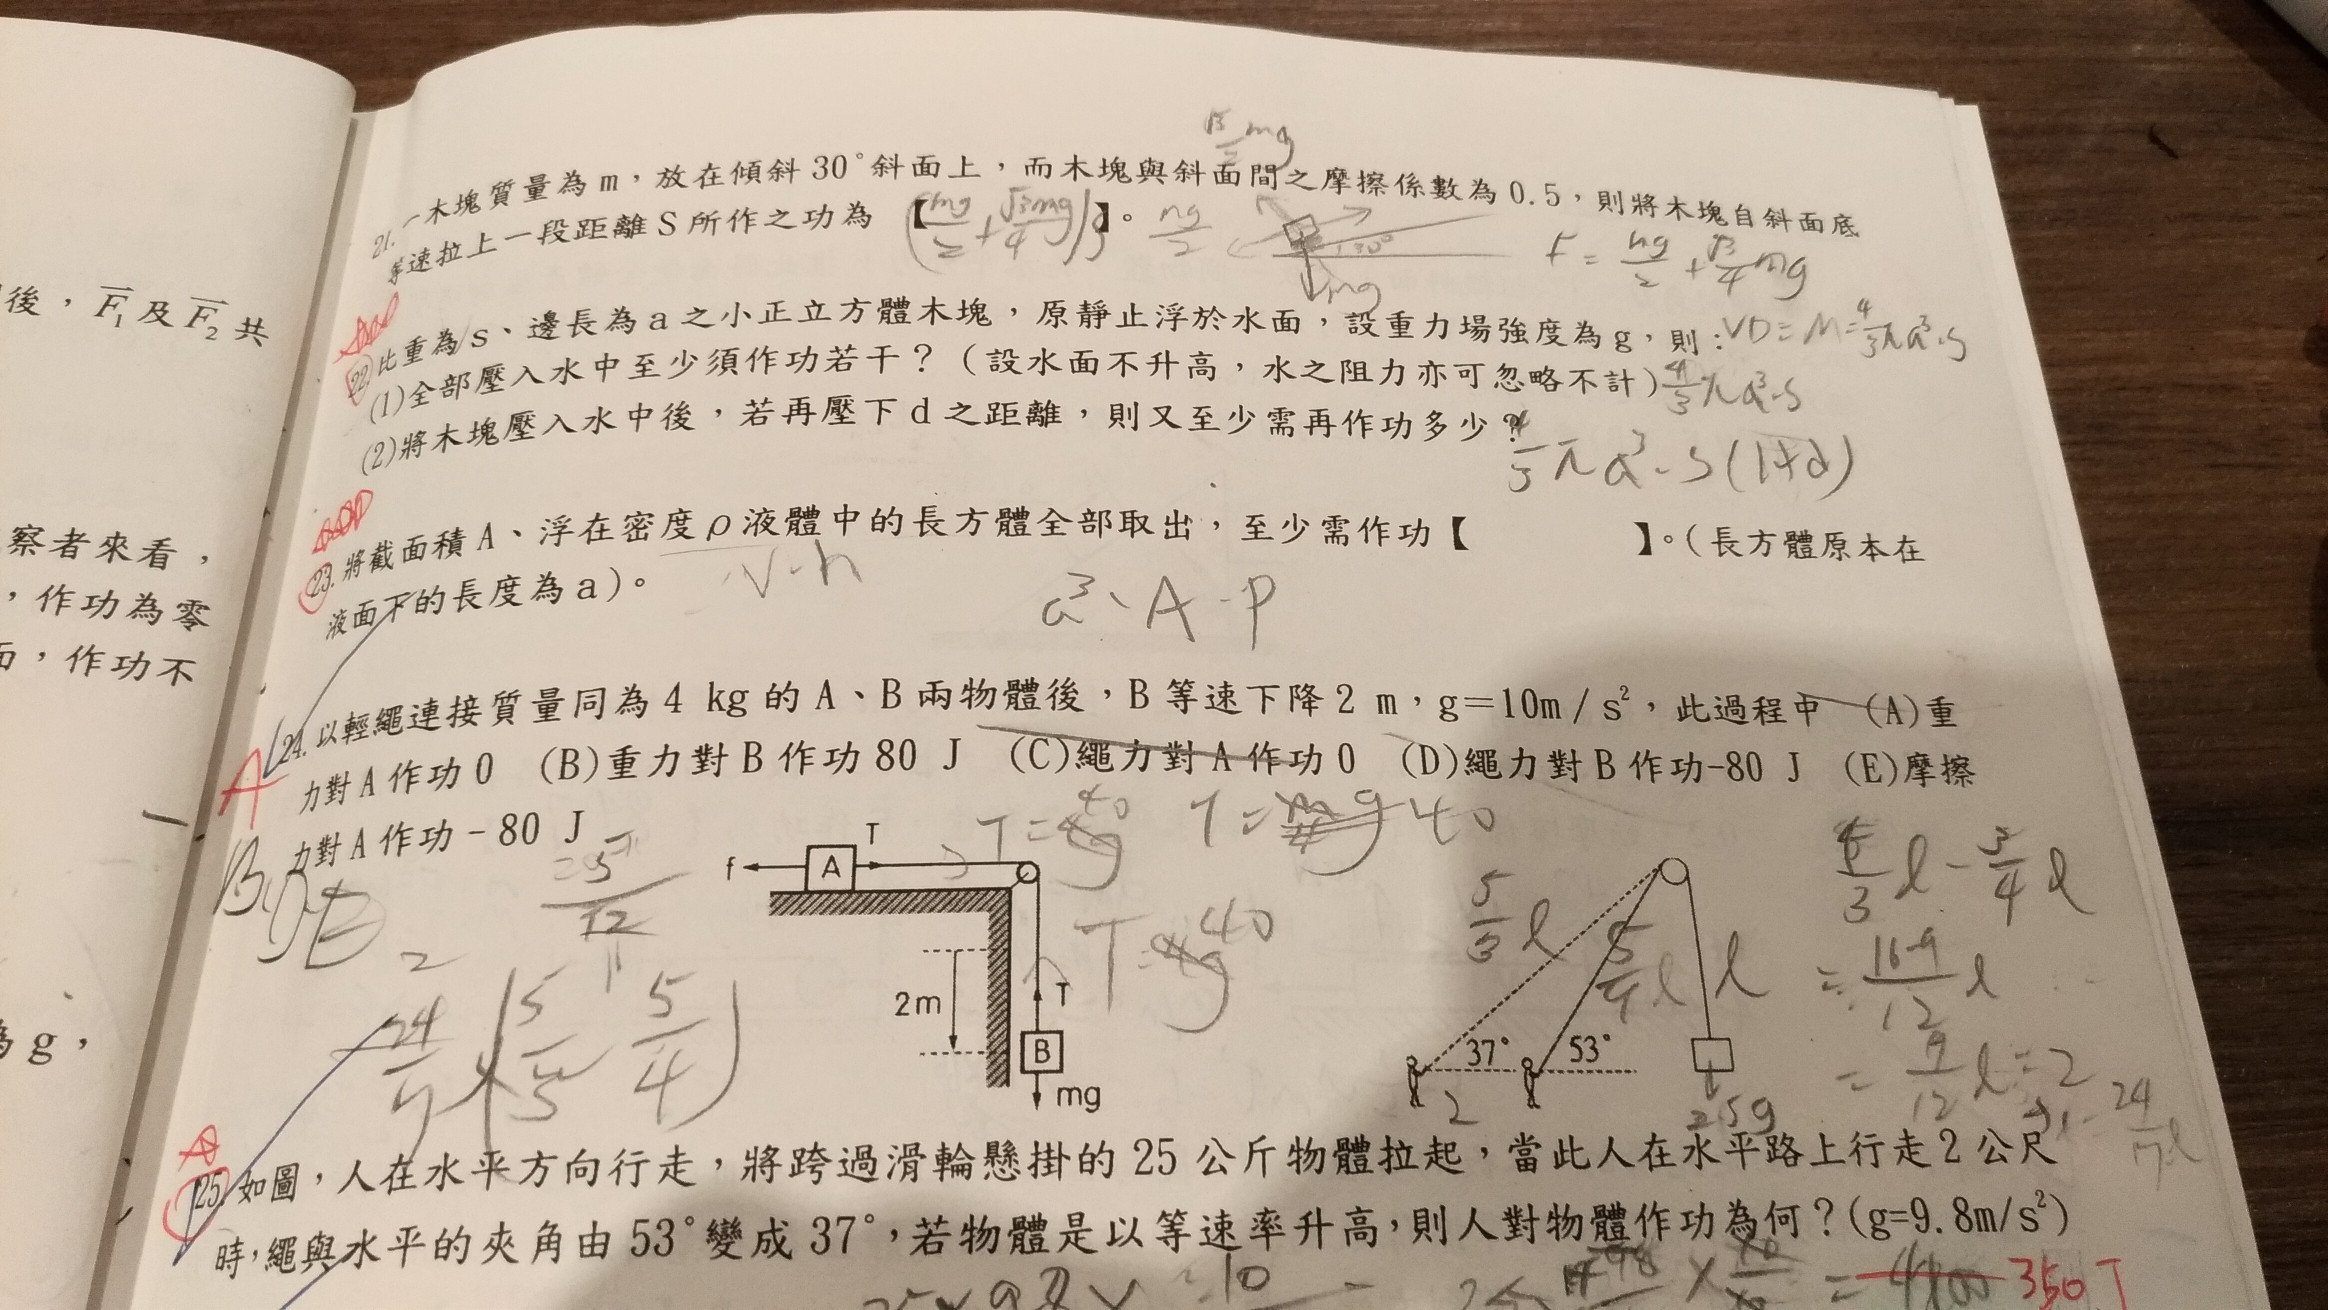 21. 一木塊質量為 m，放在傾斜 30°斜面上，而木塊與斜面間之摩擦係數為 0.5，則將木塊自斜面底
等速拉上一段距離 S 所作之功為 【(mg/2+√3mg/4)S】。
√3/2 mg
mg/2
30°
mg
F = mg/2 + √3/4 mg
後，F₁ 及 F₂ 共
22. 比重為 s、邊長為 a 之小正立方體木塊，原靜止浮於水面，設重力場強度為 g，則：
VD = M = 4/3πa³·S
(1)全部壓入水中至少須作功若干？（設水面不升高，水之阻力亦可忽略不計）
4/3πa³·S
(2)將木塊壓入水中後，若再壓下 d 之距離，則又至少需再作功多少？
4/3πa³·S(1+d)
察者來看，
，作功為零
面，作功不
23. 將截面積 A、浮在密度 ρ 液體中的長方體全部取出，至少需作功【 】。（長方體原本在
液面下的長度為 a）。
V·h
a³、A·P
24. 以輕繩連接質量同為 4 kg 的 A、B 兩物體後，B 等速下降 2 m，g＝10m / s²，此過程中 (A)重
力對 A 作功 0 (B)重力對 B 作功 80 J (C)繩力對 A 作功 0 (D)繩力對 B 作功-80 J (E)摩擦
力對 A 作功－80 J
A
T = 40
T = mg 40
f A T
T = 40
2m
T
B
mg
5/3 l
5/4 l
l
37° 53°
2
25g
= 2
為 g，
25. 如圖，人在水平方向行走，將跨過滑輪懸掛的 25 公斤物體拉起，當此人在水平路上行走 2 公尺
時，繩與水平的夾角由 53°變成 37°，若物體是以等速率升高，則人對物體作功為何？(g=9.8m/s²)
350J